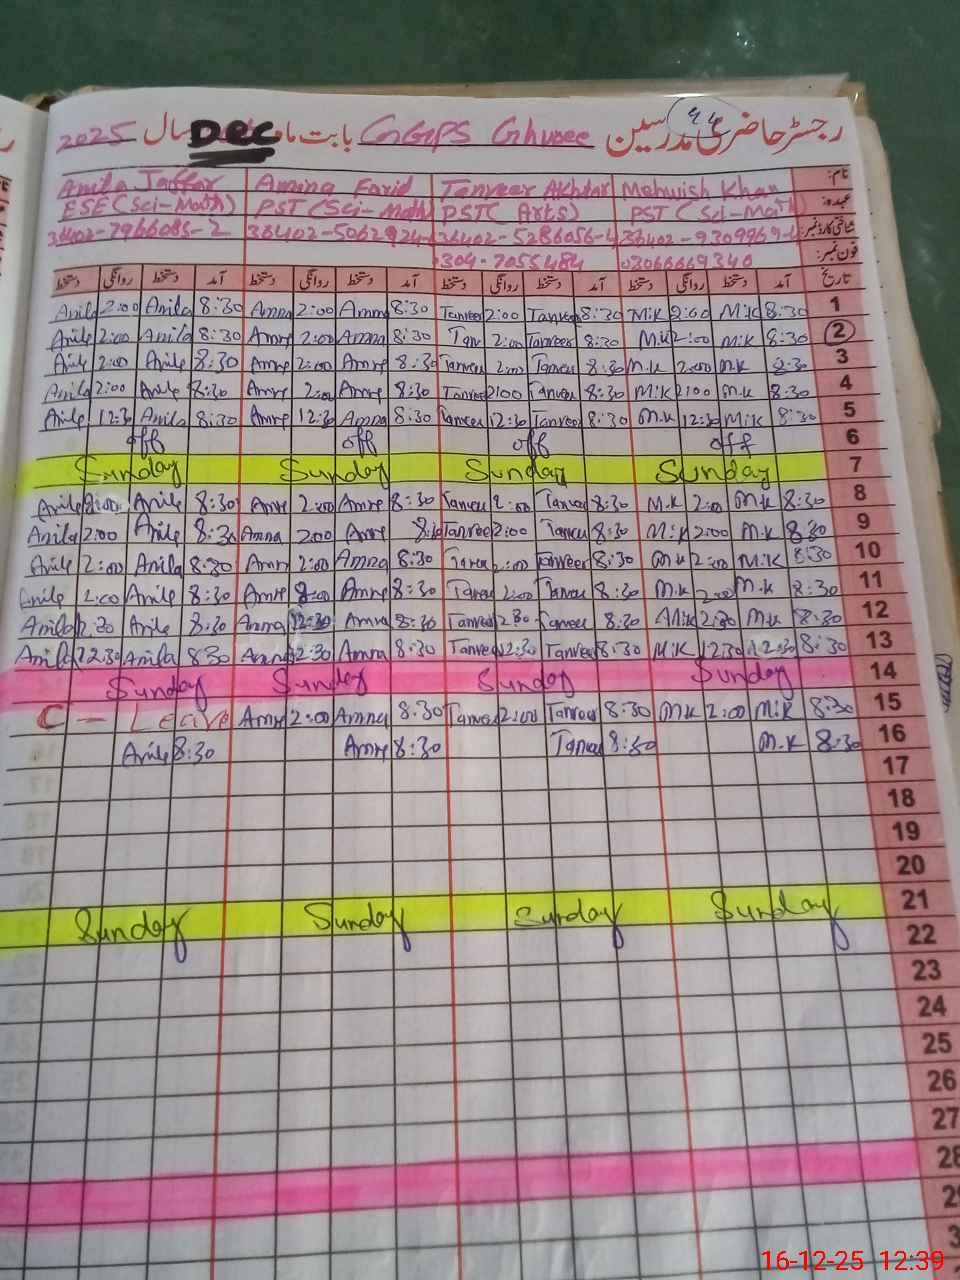 44
رجسٹر حاضری مدرسین GGPS Ghvsee بابت ماہ Dec سال 2025
نام: Anila Jaffar Amina Farid Tanveer Akhtar Mehwish Khan
عہدہ: ESE (Sci-Math) PST (Sci-Math) PST (Arts) PST (Sci-Math)
شناختی کارڈ نمبر: 36402-7966085-2 36402-5062924- 36402-5286056-4 36402-9309969-
فون نمبر: 0304-7055484 03066669340
تاریخ آمد دستخط روانگی دستخط آمد دستخط روانگی دستخط آمد دستخط روانگی دستخط آمد دستخط روانگی دستخط
Anila 2:00 Anila 8:30 Amna 2:00 Amna 8:30 Tanveer 2:00 Tanveer 8:30 M.K 2:00 M.K 8:30 1
Anile 2:00 Anila 8:30 Amne 2:00 Amna 8:30 Tan 2:00 Tanveer 8:30 M.K 2:00 M.K 8:30 2
Anile 2:00 Anile 8:30 Amne 2:00 Amne 8:30 Tanveer 2:00 Tanveer 8:30 M.K 2:00 M.K 8:30 3
Anila 2:00 Anile 8:30 Amne 2:00 Amne 8:30 Tanveer 2:00 Tanveer 8:30 M.K 2:00 M.K 8:30 4
Anile 12:30 Anila 8:30 Amne 12:30 Amna 8:30 Tanveer 12:30 Tanveer 8:30 M.K 12:30 M.K 8:30 5
off off off off 6
Sunday Sunday Sunday Sunday 7
Anile 2:00 Anile 8:30 Amne 2:00 Amne 8:30 Tanveer 2:00 Tanveer 8:30 M.K 2:00 M.K 8:30 8
Anila 2:00 Anile 8:30 Amna 2:00 Amne 8:30 Tanveer 2:00 Tanveer 8:30 M.K 2:00 M.K 8:30 9
Anile 2:00 Anila 8:30 Amne 2:00 Amna 8:30 Tanveer 2:00 Tanveer 8:30 M.K 2:00 M.K 8:30 10
Anile 2:00 Anile 8:30 Amne 2:00 Amne 8:30 Tanveer 2:00 Tanveer 8:30 M.K 2:00 M.K 8:30 11
Anila 12:30 Anile 8:30 Amna 12:30 Amna 8:30 Tanveer 2:30 Tanveer 8:30 M.K 2:30 M.K 8:30 12
Anila 12:30 Anila 8:30 Amna 12:30 Amna 8:30 Tanveer 12:30 Tanveer 8:30 M.K 12:30 8:30 13
Sunday Sunday Sunday Sunday 14
C - Leave Amne 2:00 Amna 8:30 Tanveer 2:00 Tanveer 8:30 M.K 2:00 M.K 8:30 15
Anile 8:30 Amne 8:30 Tanveer 8:30 M.K 8:30 16
17
18
19
20
Sunday Sunday Sunday Sunday 21
22
23
24
25
26
27
28
29
16-12-25 12:39